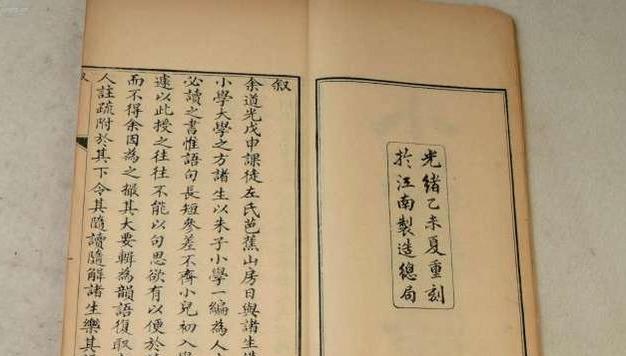 光緒乙未夏重刻
於江南製造總局
叙
余道光戊申課徒左氏芭蕉山房日與諸生
小學大學之方諸生以朱子小學一編為人
必讀之書惟語句長短參差不齊小兒初入學
遽以此授之往往不能以句思欲有以便於
而不得余因為之撮其大要輯為韻語復取
人註疏附於其下令其隨讀隨解諸生樂其